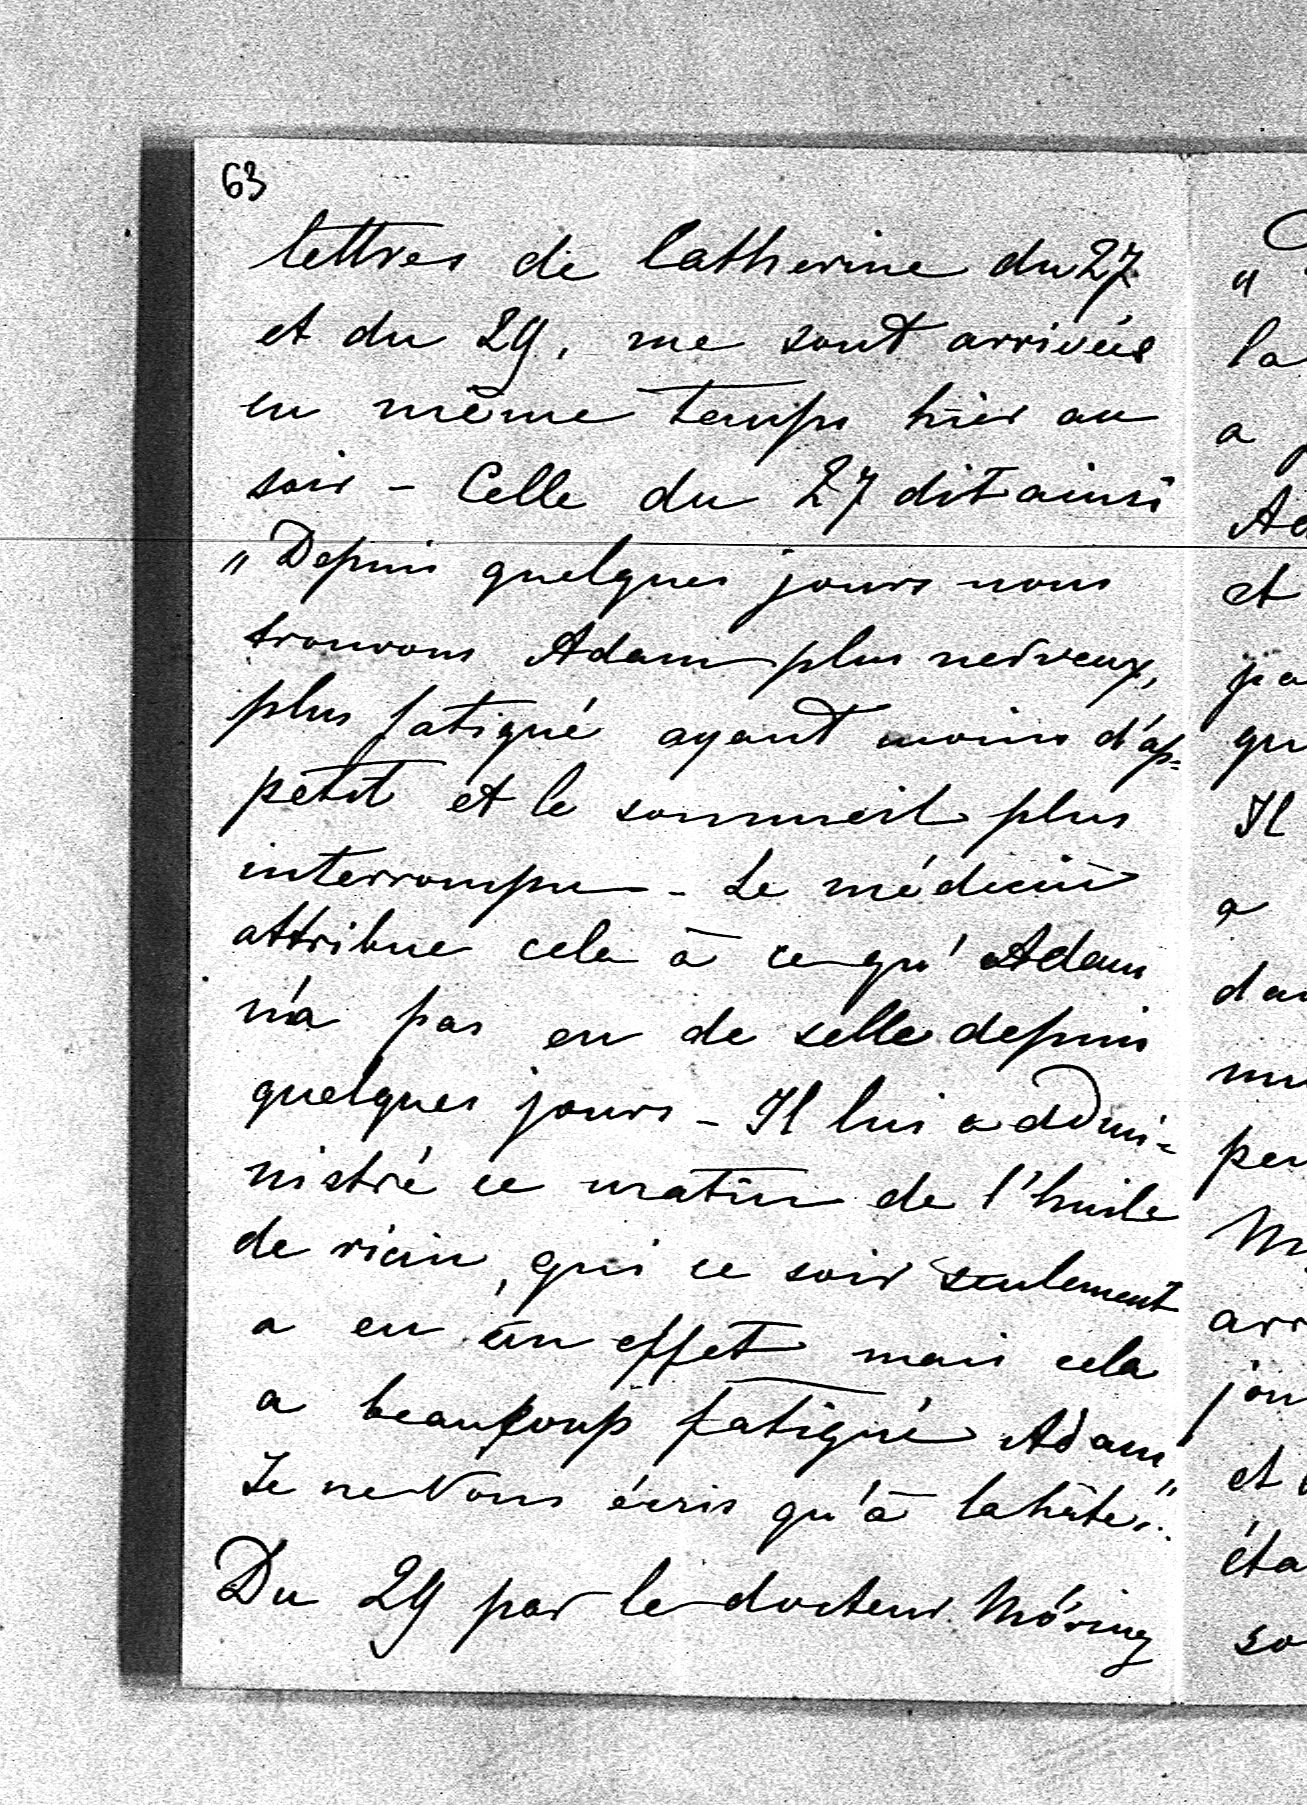 63
lettres de Catherine du 27
et du 29, me sont arrivées
en même temps hier au
soir - Celle du 27 dit ainsi
„Depuis quelques jours nous
trouvons Adam plus nerveux,
plus fatigué ayant moins d'ap=
pétit et le sommeil plus
interrompu - Le médecin
attribue cela à ce qu'Adam
n'a pas eu de selle depuis
quelques jours - Il lui a admi-
nistré ce matin de l'huile
de ricin, qui ce soir seulement
a eu un effet mais cela
a beaucoup fatigué Adam
Je ne Vous écris qu'à la hâte."
Du 29 par le docteur Möring
„
la
a
Ad
et
pa
qu
Il
a
dan
mu
peu
arr
jou
et
éta
so